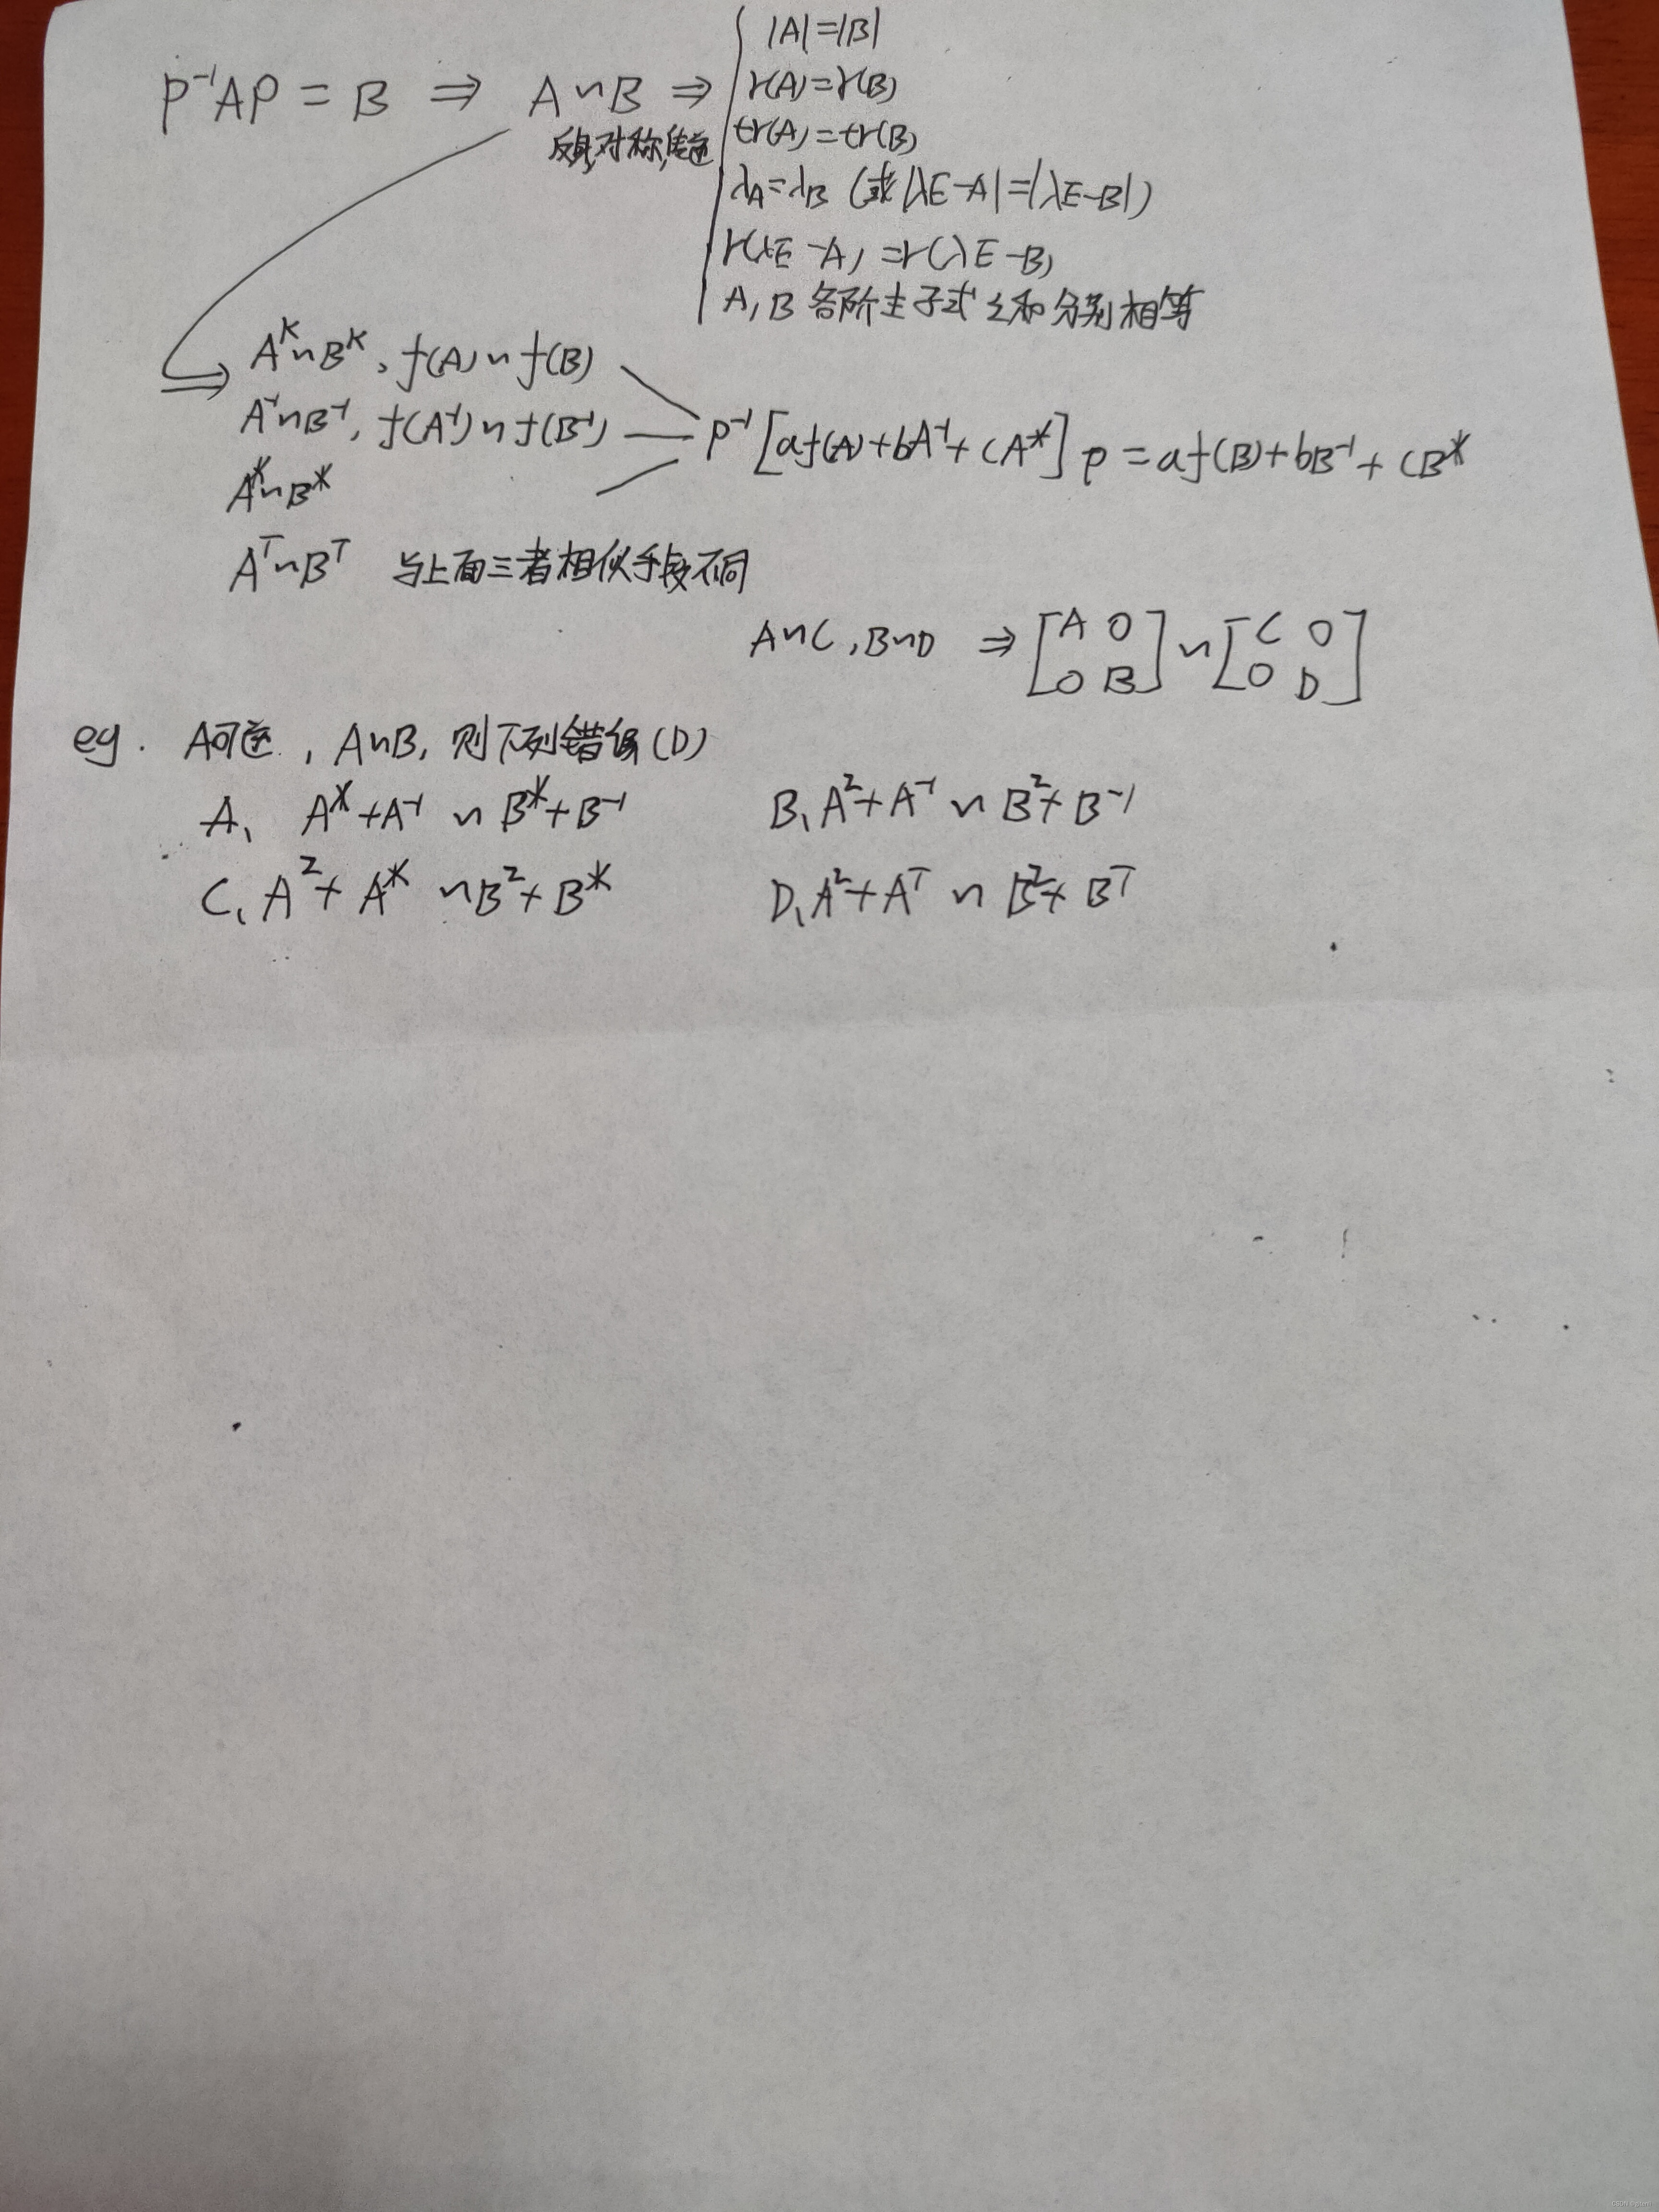 P⁻¹AP = B ⇒ A∽B ⇒ { |A|=|B|
r(A)=r(B)
tr(A)=tr(B)
反身,对称,传递
λ_A=λ_B (或|λE-A|=|λE-B|)
r(λE-A)=r(λE-B)
A,B各阶主子式之和分别相等
⇒ Aᴷ∽Bᴷ, f(A)∽f(B)
A⁻¹∽B⁻¹, f(A⁻¹)∽f(B⁻¹) — P⁻¹[af(A)+bA⁻¹+cA*]P=af(B)+bB⁻¹+cB*
A*∽B*
Aᵀ∽Bᵀ 与上面三者相似手段不同
A∽C,B∽D ⇒ [A O]∽[C O]
[O B] [O D]
eg. A可逆, A∽B, 则下列错误(D)
A、A*+A⁻¹∽B*+B⁻¹ B、A²+A⁻¹∽B²+B⁻¹
C、A²+A*∽B²+B* D、A²+Aᵀ∽B²+Bᵀ